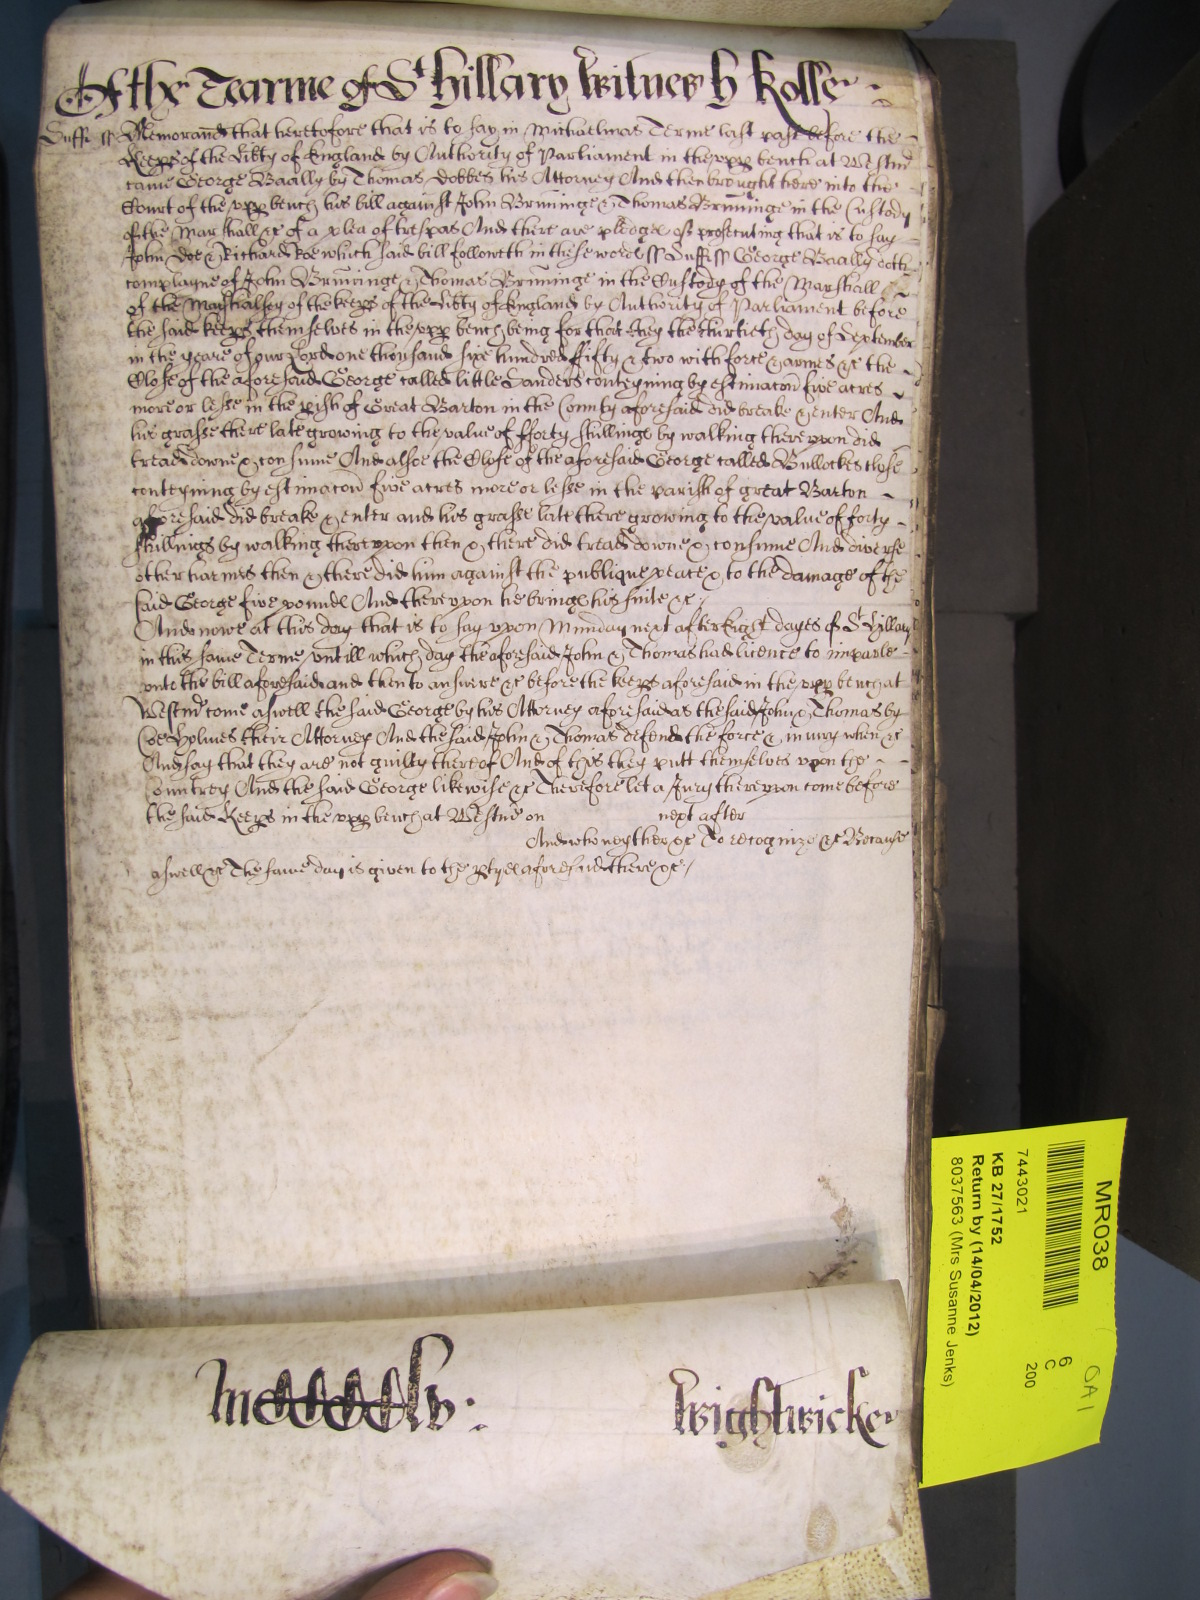 Of the Tearme of St hillary Witnes H Rolle
Suff ss Memorand that heretofore that is to say in Michaelmas Terme last past before the
Keeps of the Libty of England by Authority of Parliament in the upp bench at Westm
came George Baally by Thomas Dobbes his Attorney And then brought here into the
Court of the upp bench his bill against John Brininge & Thomas Brininge in the Custody
of the Marshall &c of a plea of trespas And there are pledges of prosecuting that is to say
John Doe & Richard Roe which said bill followeth in these words ss Suff ss George Baally doth
complayne of John Brininge & Thomas Brininge in the Custody of the Marshall
of the Marshalsey of the keeps of the Libty of England by Authority of Parliament before
the said keeps themselves in the upp bench being for that they the thirtieth day of September
in the yeare of our Lord one thousand sixe hundred fifty & two with force & armes &c the
Close of the aforesaid George called little Sanders conteyning by estimacon five acres
more or lesse in the pish of Great Barton in the County aforesaid did breake & enter And
his grasse there late growing to the value of fforty shillings by walking thereupon did
tread downe & consume And alsoe the Close of the aforesaid George called Bullockes close
conteyning by estimacon five acres more or lesse in the parish of great Barton
aforesaid did breake & enter and his grasse late there growing to the value of forty
shillings by walking thereupon then & there did tread downe & consume And diverse
other harmes then & there did him against the publique peace & to the damage of the
said George five pounds And thereupon he brings his suite &c
And nowe at this day that is to say upon Munday next after Eight dayes of St Hillary
in this same Terme untill which day the aforesaid John & Thomas had licence to imparle
unto the bill aforesaid and then to answere &c before the keeps aforesaid in the upp bench at
Westm come aswell the said George by his Attorney aforesaid as the said John & Thomas by
Holmes their Attorney And the said John & Thomas defend the force & iniury when &c
And say that they are not guilty thereof And of this they putt themselves upon the
Countrey And the said George likewise &c Therefore let a Jury thereupon come before
the said Keeps in the upp bench at Westm on next after
And who neyther &c To recognize &c Because
aswell &c The same day is given to the ptyes aforesaid there &c
Wightwicke
MR038
7443021
KB 27/1752
Return by (14/04/2012)
8037563 (Mrs Susanne Jenks)
6
C
200
OA1